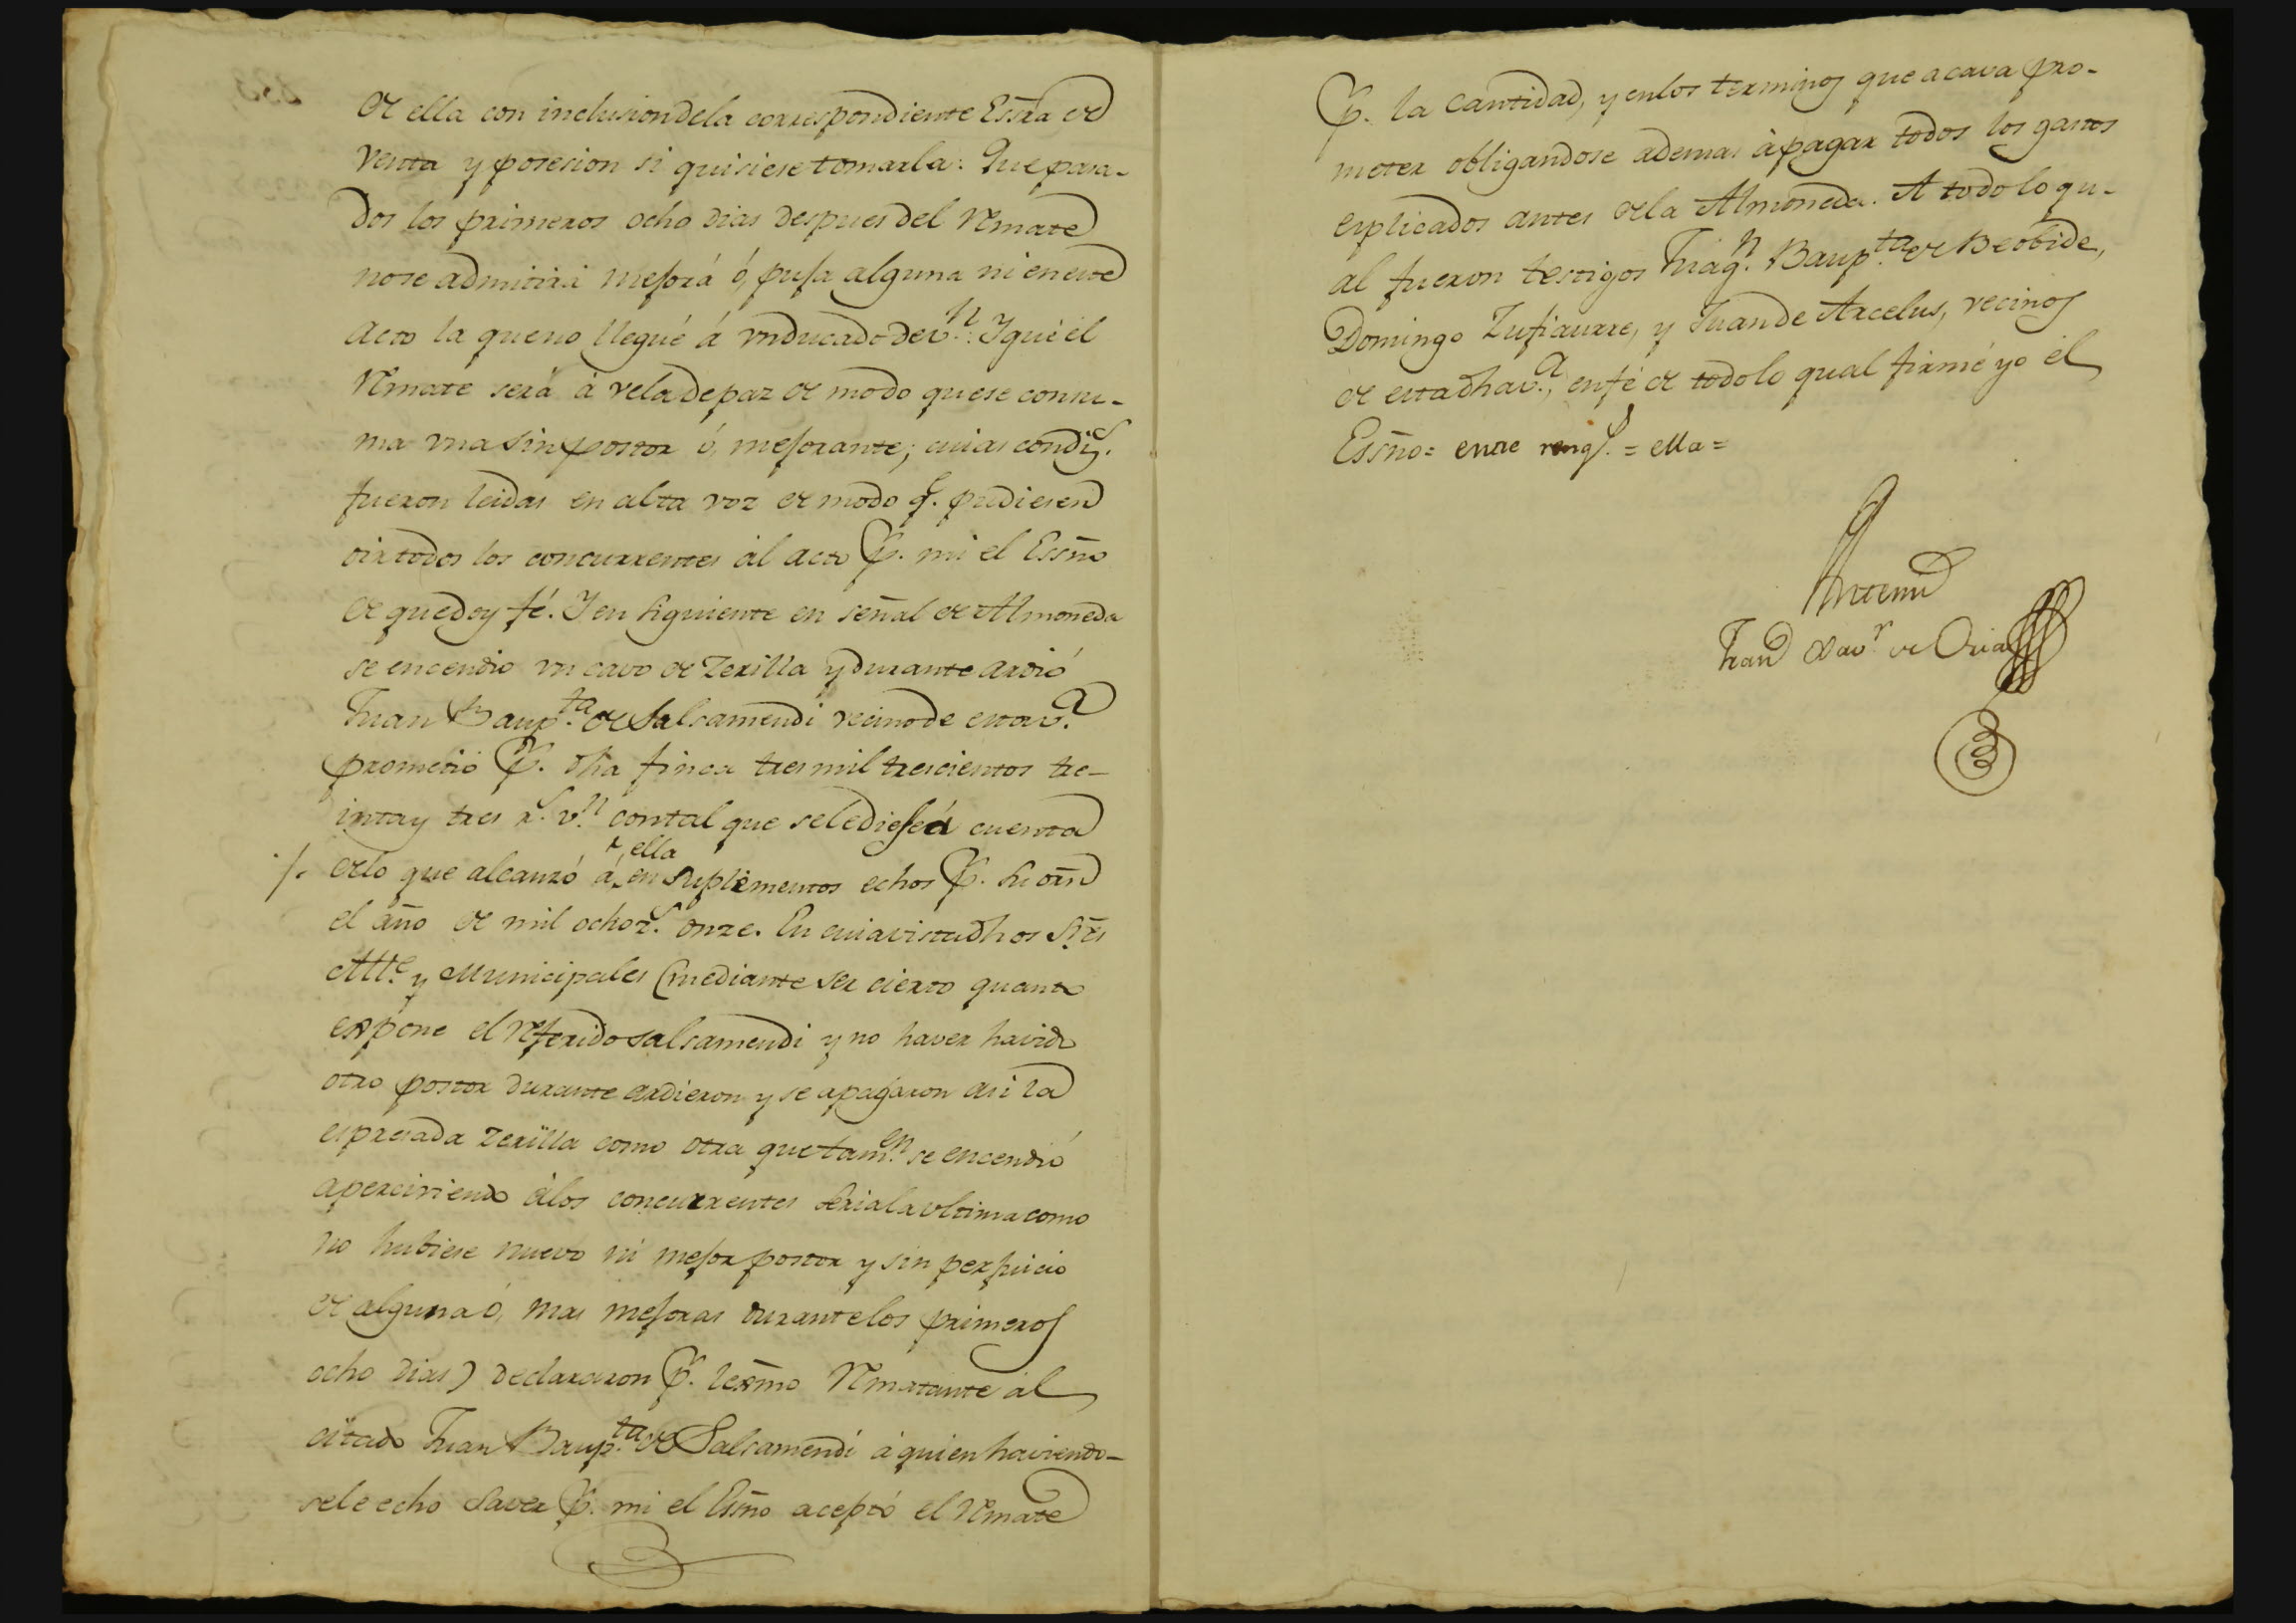 de ella con inclusion dela correspondiente Essra de
venta y posesion si quisiese tomarla: Que pasa-
dos los primeros ocho dias despues del remate
nose admitirá mejorá ó, puja alguna ni en este
acto la que no llegué á vn ducado de v.n: Y que el
remate será á vela de paz de modo quese consu-
ma vna sin postor ó, mejorante; cuias condi.s
fueron leidas en alta voz de modo q.e pudiesen
oir todos los concurrentes al acto p. mi el Essño
de que doy fé. Y en siguiente en señal de Almoneda
se encendio vn cavo de Zerilla y durante ardió
Juan Baup.ta de Salsamendi vecino de esta v.a
prometió p. dha finca tres mil trescientos tre-
inta y tres r.s v.n con tal que sele diese á cuenta
ella
/. delo que alcanzó á en suplementos echos p. su orñ
el año de mil ochoz.s onze. En cuia vista dhos S.res
Alt.e y Municipales (mediante ser cierto quanto
expone el referido Salsamendi y no haver havido
otro postor durante ardieron y se apagaron asi la
espresada zerilla como otra que tam.en se encendió
aperciviendo álos concurrentes seria la vltima como
no hubiese nuevo ni mejor postor y sin perjuicio
de alguna ó, mas mejoras durante los primeros
ocho dias) declararon p. lexmo rematante al
citado Juan Baup.ta de Salsamendi á quien haviendo-
sele echo saver p. mi el Essño aceptó el remate
p. la cantidad, y enlos terminos que acava pro-
meter obligandose ademas á pagar todos los gastos
esplicados antes dela Almoneda. A todo lo qu-
al fueron testigos Juaq.n Baup.ta de Beobide,
Domingo Zufiaurre, y Juan de Arcelus, vecinos
de esta dha v.a, en fé de todo lo qual firmé yo el
Essño= entre rengs. = ella =
Antemi
Fran.co Xav.r de Oria